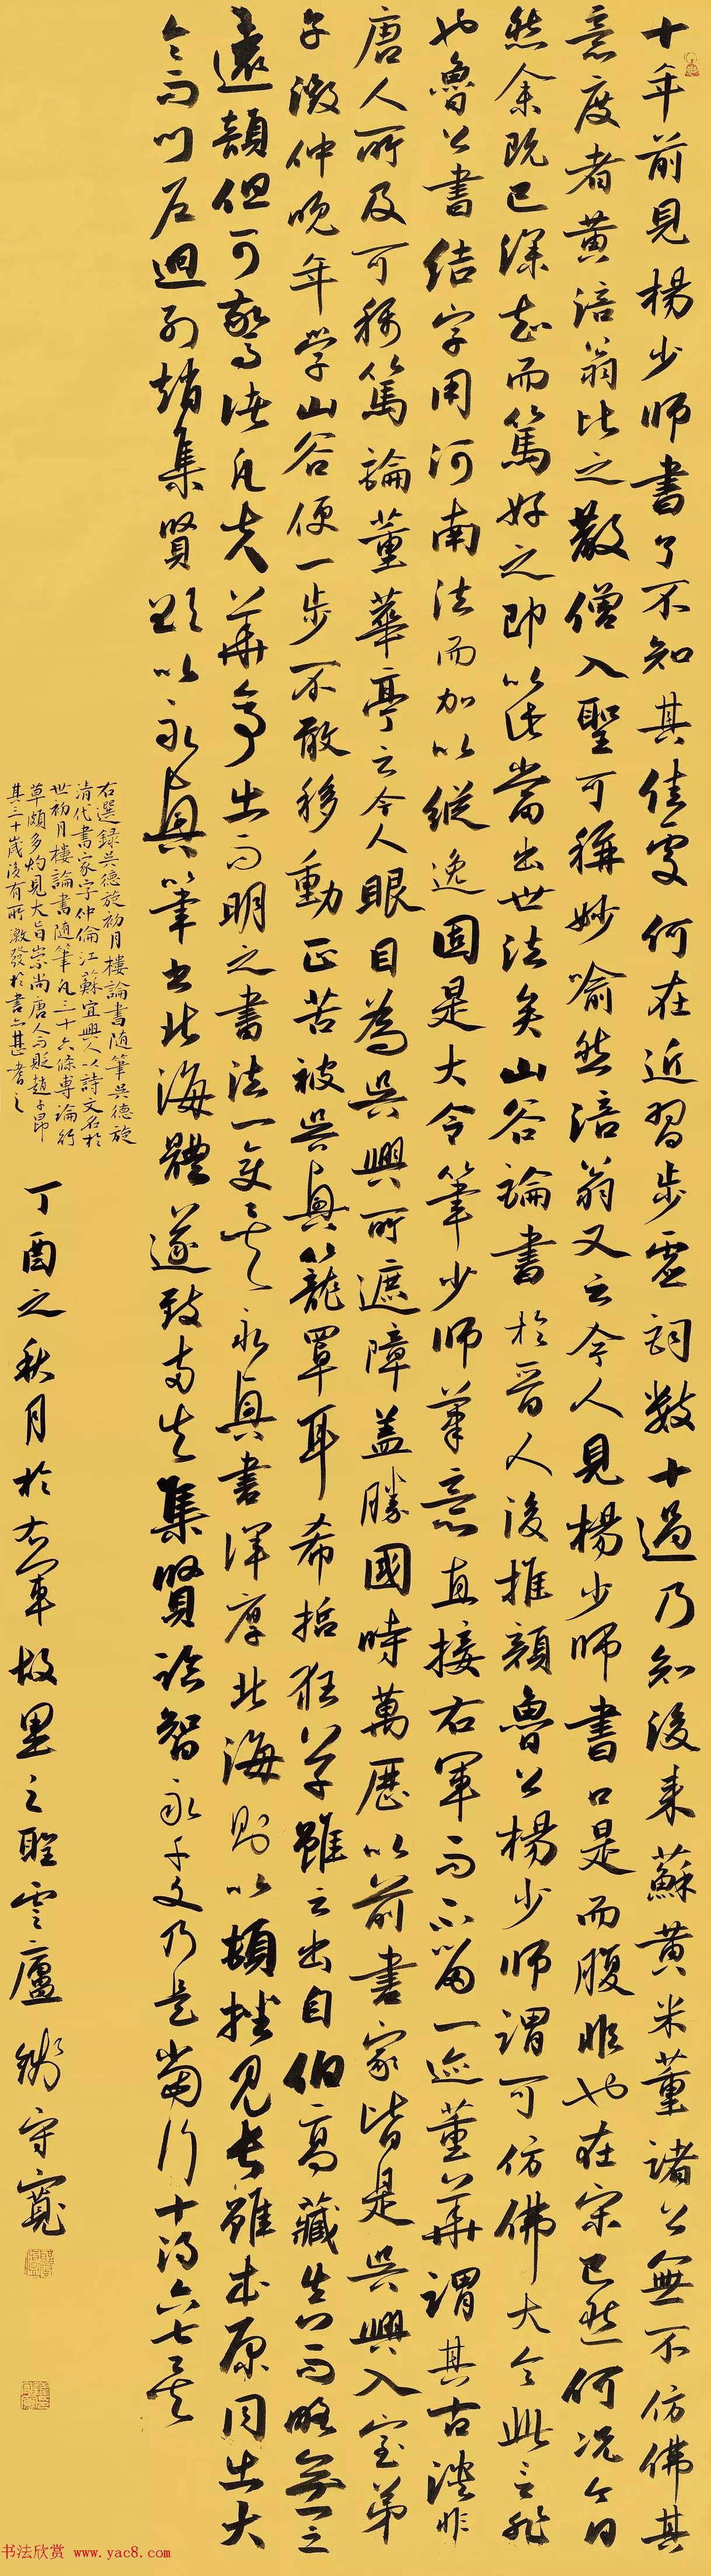 十年前見楊少師書了不知其佳處何在近習步虛詞數十過乃知後来蘇黄米董諸公無不仿佛其
意度者黄涪翁比之散僧入聖可稱妙喻然涪翁又云今人見楊少师書口是而腹非也在宋已然何况今日
然余既已深知而篤好之即以此當出世法矣山谷論書於晋人後推顔魯公楊少师謂可仿佛大令此言非
也魯公書結字用河南法而加以縱逸固是大令筆少师筆意直接右軍而不留一迹董華謂其古淡非
唐人所及可稱篤論董華亭云今人眼目為吴興所遮障盖勝國時萬歷以前書家皆是吴興入室弟
子徵仲晚年学山谷便一步不敢移動正苦被吴興籠罩耳希哲狂草雖云出自伯高藏真而略無一之
遠韻但可驚諸凡夫華亭出而明之書法一變矣永興書渾厚北海則以頓挫見長雖本原同出大
令而門户迥別趙集賢欲以永興筆書北海體遂致兩失集賢臨智永千文乃是當行十得六七矣
右選録吴德旋初月樓論書随筆吴德旋
清代書家字仲倫江蘇宜興人以詩文名於
世初月樓論書随筆凡三十六條專論行
草頗多灼見大旨崇尚唐人而貶趙子昂
其三十歲後有所激發於書亦甚耆之
丁酉之秋月於右軍故里之聖雲廬 守寬
书法欣赏 www.yac8.com